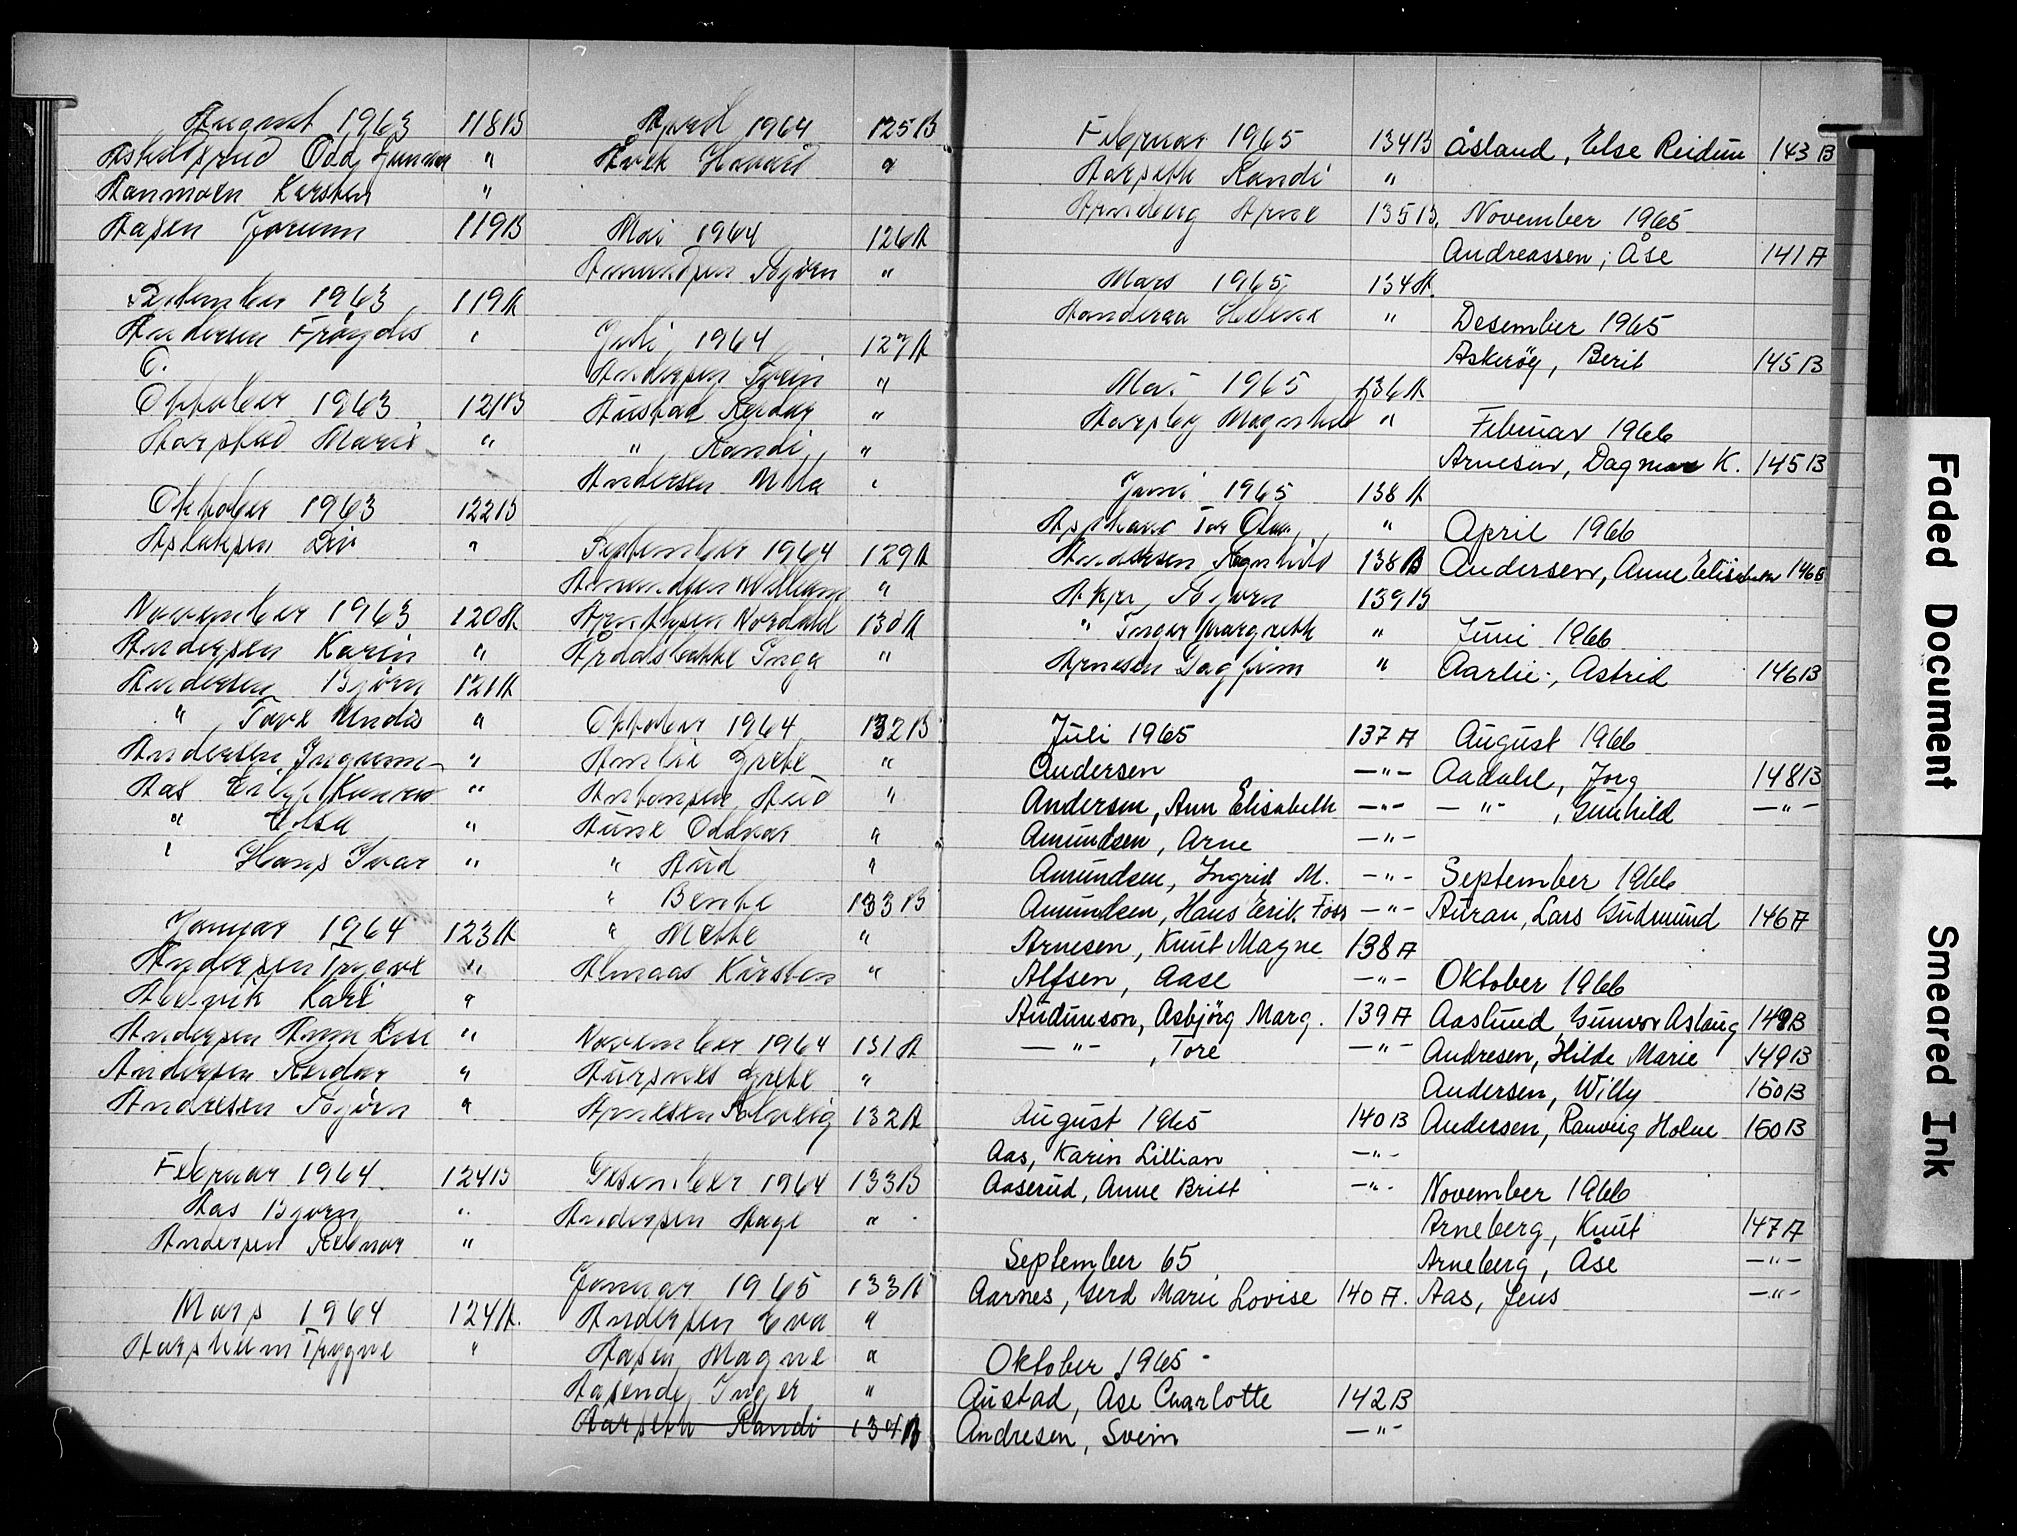 August 1963 118B
Askildsrud Odd Gunnar "
Aanmoen Karsten "
Aasen Jorunn 119B
September 1963 119A
Andersen Frøydis "
O.
Oktober 1963 121B
Harstad Marie "
Oktober 1963 122B
Aslaksen Liv "
November 1963 120A
Andersen Karin "
Andersen Bjørn 121A
" Tove Undis "
Andersen Ingunn "
Aas "
" Elsa "
" Hans Ivar "
Januar 1964 123A
Andersen Trygve "
Kari "
Andersen Anne Lise "
Andersen Reidar "
Andresen Torjørn "
Februar 1964 124B
Aas Bjørn "
Andersen "
Mars 1964 124A.
Aarsheim Trygve "
April 1964 125B
Håvard "
Mai 1964 126A
Amundsen "
Juli 1964 127A
Andersen Svein "
Austad Reidar "
" Randi "
Andersen Ulla "
September 1964 129A
Amundsen William "
Arntzsen Nordahl 130A
Årdalsbakke Inga "
Oktober 1964 132B
Amlie Grete "
Antonsen Aud "
Aune Oddvar "
" Aud "
" Bente 133B
" Mette "
Almaas Kirsten "
November 1964 131A
Aursnes Grete "
Arnesen Solveig 132A
Desember 1964 133B
Andersen Aage "
Januar 1965 133A
Andersen Eva "
Aasen Magne "
Aasende Inger "
Aarseth Randi 134B
Februar 1965 134B
Aarseth Randi "
Arneberg Arne 135B.
Mars 1965 134A.
Helene "
Mai 1965 136A
Aarsby Magnhild "
Juni 1965 138A
Tor Olav "
Andersen Agnhild 138B
Aker 139B
" Inger Margrethe "
Arnesen Dagfinn "
Juli 1965 137A
Andersen —"—
Andersen, Ann Elisabeth —"—
Amundsen, Arne —"—
Amundsen, Ingrid M. —"—
Amundsen, Hans Erik Foss —"—
Arnesen, Knut Magne 138A
Alfsen, Aase —"—
Audunson, Asbjörg Marg. 139A
—"— , Tore —"—
August 1965 140B
Aas, Karin Lillian —"—
Aaserud, Anne Britt —"—
September 65
Aarnes, Gerd Marie Lovise 140A.
Oktober 1965
Austad, Åse Charlotte 142B
Andresen, Svein —"—
Åsland, Else Reidun 143B
November 1965
Andreassen, Åse 141A
Desember 1965
Askeröy, Berit 145B
Februar 1966
Arnesen, Dagmar K. 145B
April 1966
Andersen, Anne Elisabeth 146B
Juni 1966
Aarlie, Astrid 146B
August 1966
Aadahl, Jorg 148B
—"— , Gunhild —"—
September 1966
Auran, Lars Gudmund 146A
Oktober 1966
Aaslund, Gunvor Aslaug 149B
Andresen, Hilde Marie 149B
Andersen, Willy 150B
Andersen, Rannveig Holne 150B
November 1966
Arneberg, Knut 147A
Arneberg, Åse —"—
Aas, Jens —"—
Faded Document
Smeared Ink